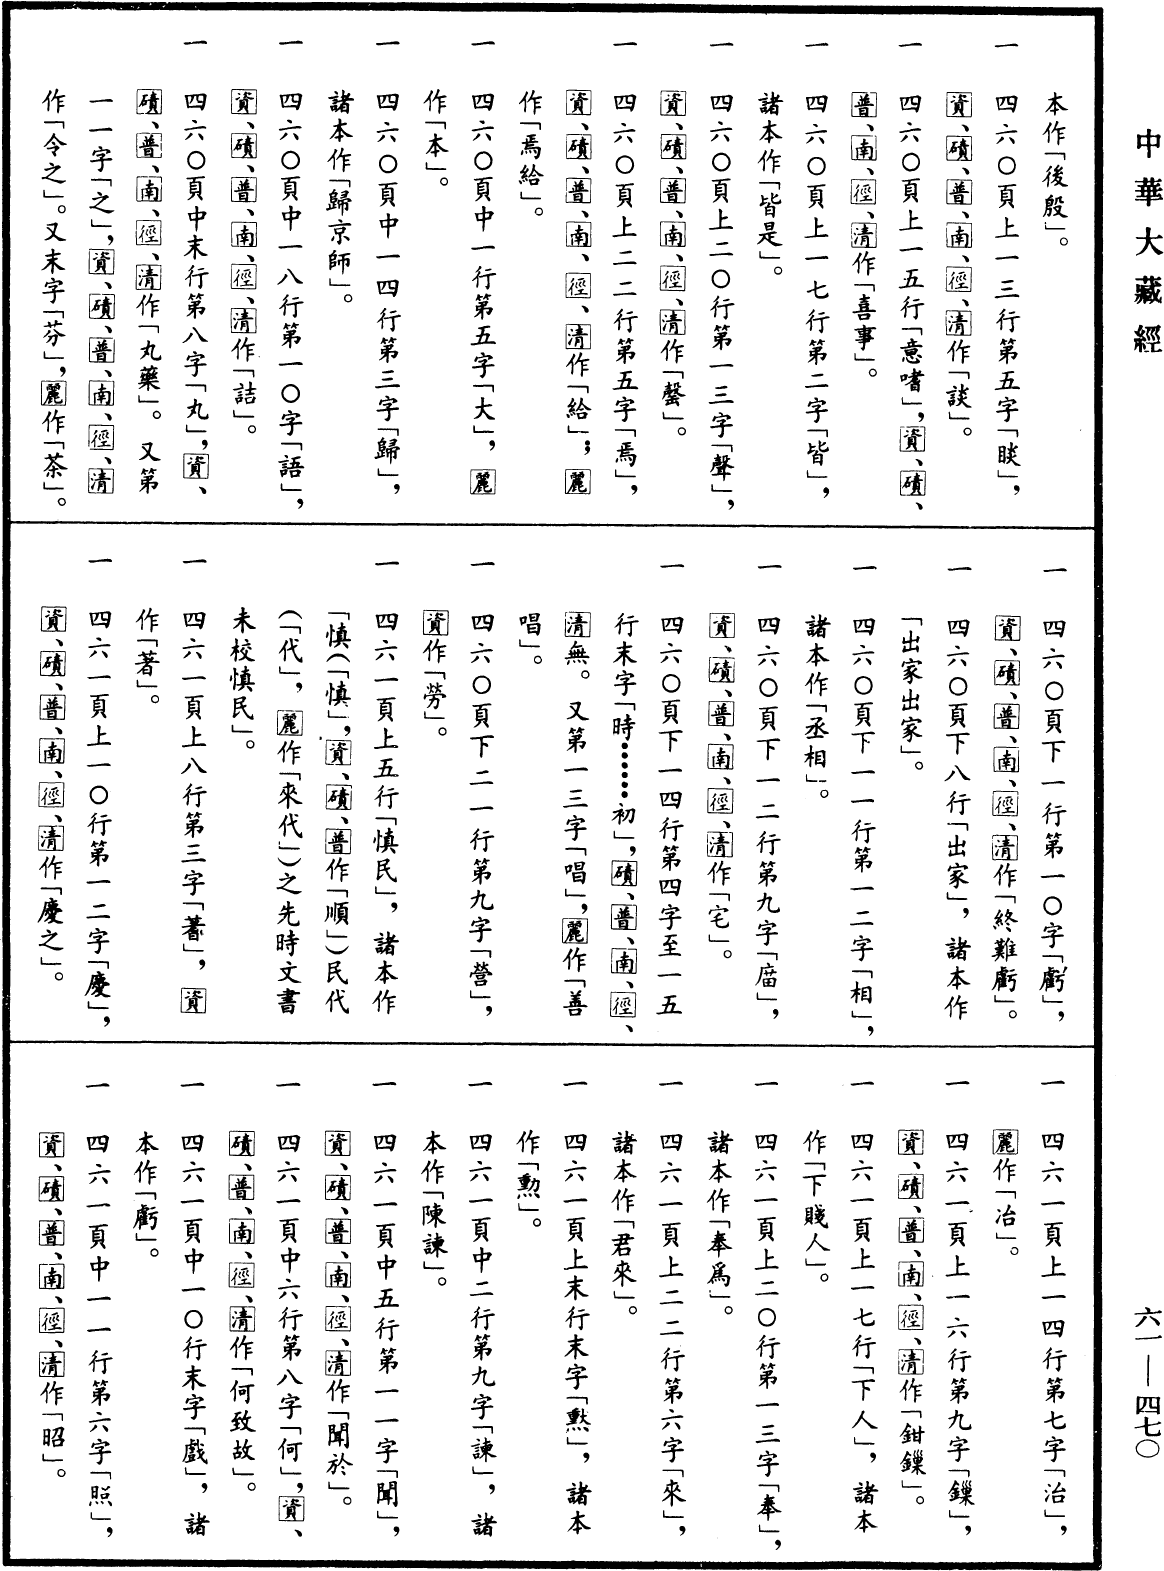 中華大藏經
六一—四七〇
本作「後殷」。
一 四六〇頁上一三行第五字「睒」，
資、磧、普、南、徑、清作「談」。
一 四六〇頁上一五行「意嗜」，資、磧、
普、南、徑、清作「喜事」。
一 四六〇頁上一七行第二字「皆」，
諸本作「皆是」。
一 四六〇頁上二〇行第一三字「聲」，
資、磧、普、南、徑、清作「罄」。
一 四六〇頁上二二行第五字「焉」，
資、磧、普、南、徑、清作「給」；麗
作「焉給」。
一 四六〇頁中一行第五字「大」，麗
作「本」。
一 四六〇頁中一四行第三字「歸」，
諸本作「歸京師」。
一 四六〇頁中一八行第一〇字「語」，
資、磧、普、南、徑、清作「詰」。
一 四六〇頁中末行第八字「丸」，資、
磧、普、南、徑、清作「丸藥」。又第
一一字「之」，資、磧、普、南、徑、清
作「令之」。又末字「芬」，麗作「茶」。
一 四六〇頁下一行第一〇字「虧」，
資、磧、普、南、徑、清作「終難虧」。
一 四六〇頁下八行「出家」，諸本作
「出家出家」。
一 四六〇頁下一一行第一二字「相」，
諸本作「丞相」。
一 四六〇頁下一二行第九字「庿」，
資、磧、普、南、徑、清作「宅」。
一 四六〇頁下一四行第四字至一五
行末字「時……初」，磧、普、南、徑、
清無。又第一三字「唱」，麗作「善
唱」。
一 四六〇頁下二一行第九字「營」，
資作「勞」。
一 四六一頁上五行「慎民」，諸本作
「慎（「慎」，資、磧、普作「順」）民代
（「代」，麗作「來代」）之先時文書
未校慎民」。
一 四六一頁上八行第三字「蓍」，資
作「著」。
一 四六一頁上一〇行第一二字「慶」，
資、磧、普、南、徑、清作「慶之」。
一 四六一頁上一四行第七字「治」，
麗作「冶」。
一 四六一頁上一六行第九字「鏁」，
資、磧、普、南、徑、清作「鉗鏁」。
一 四六一頁上一七行「下人」，諸本
作「下賤人」。
一 四六一頁上二〇行第一三字「奉」，
諸本作「奉爲」。
一 四六一頁上二二行第六字「來」，
諸本作「君來」。
一 四六一頁上末行末字「㷀」，諸本
作「勲」。
一 四六一頁中二行第九字「諫」，諸
本作「陳諫」。
一 四六一頁中五行第一一字「聞」，
資、磧、普、南、徑、清作「聞於」。
一 四六一頁中六行第八字「何」，資、
磧、普、南、徑、清作「何致故」。
一 四六一頁中一〇行末字「戲」，諸
本作「虧」。
一 四六一頁中一一行第六字「照」，
資、磧、普、南、徑、清作「昭」。